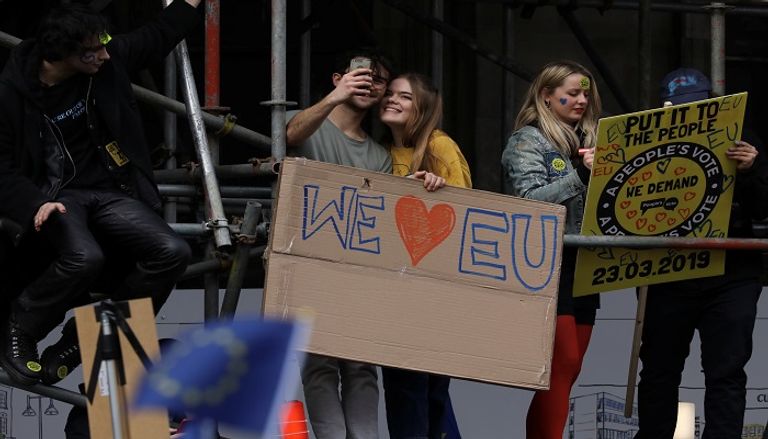 WE ❤ EU
PUT IT
TO THE
PEOPLE
A PEOPLE'S VOTE
WE DEMAND
A PEOPLE'S VOTE
23.03.2019
EU
EU
EU
EU